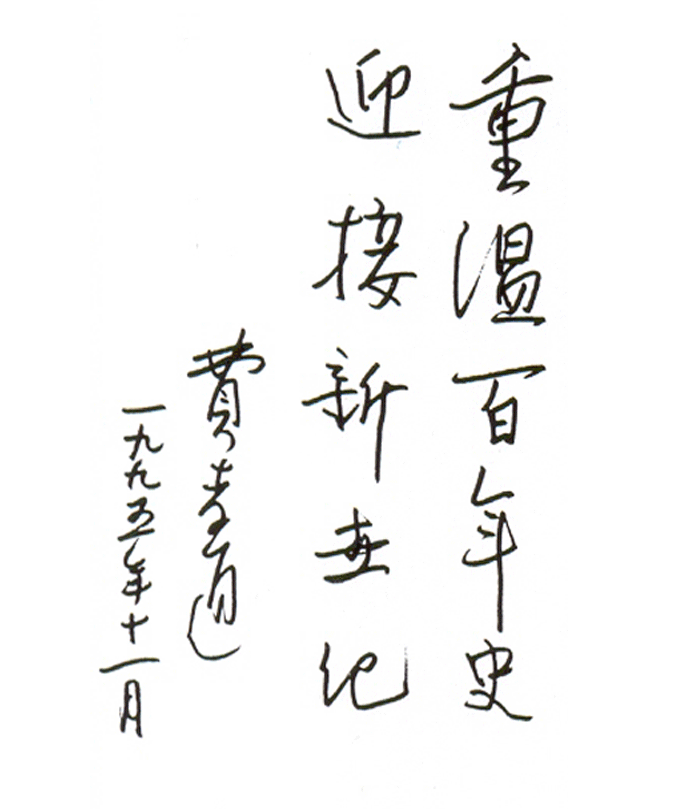 重温百年史
迎接新世纪
費孝通
一九九五年十一月